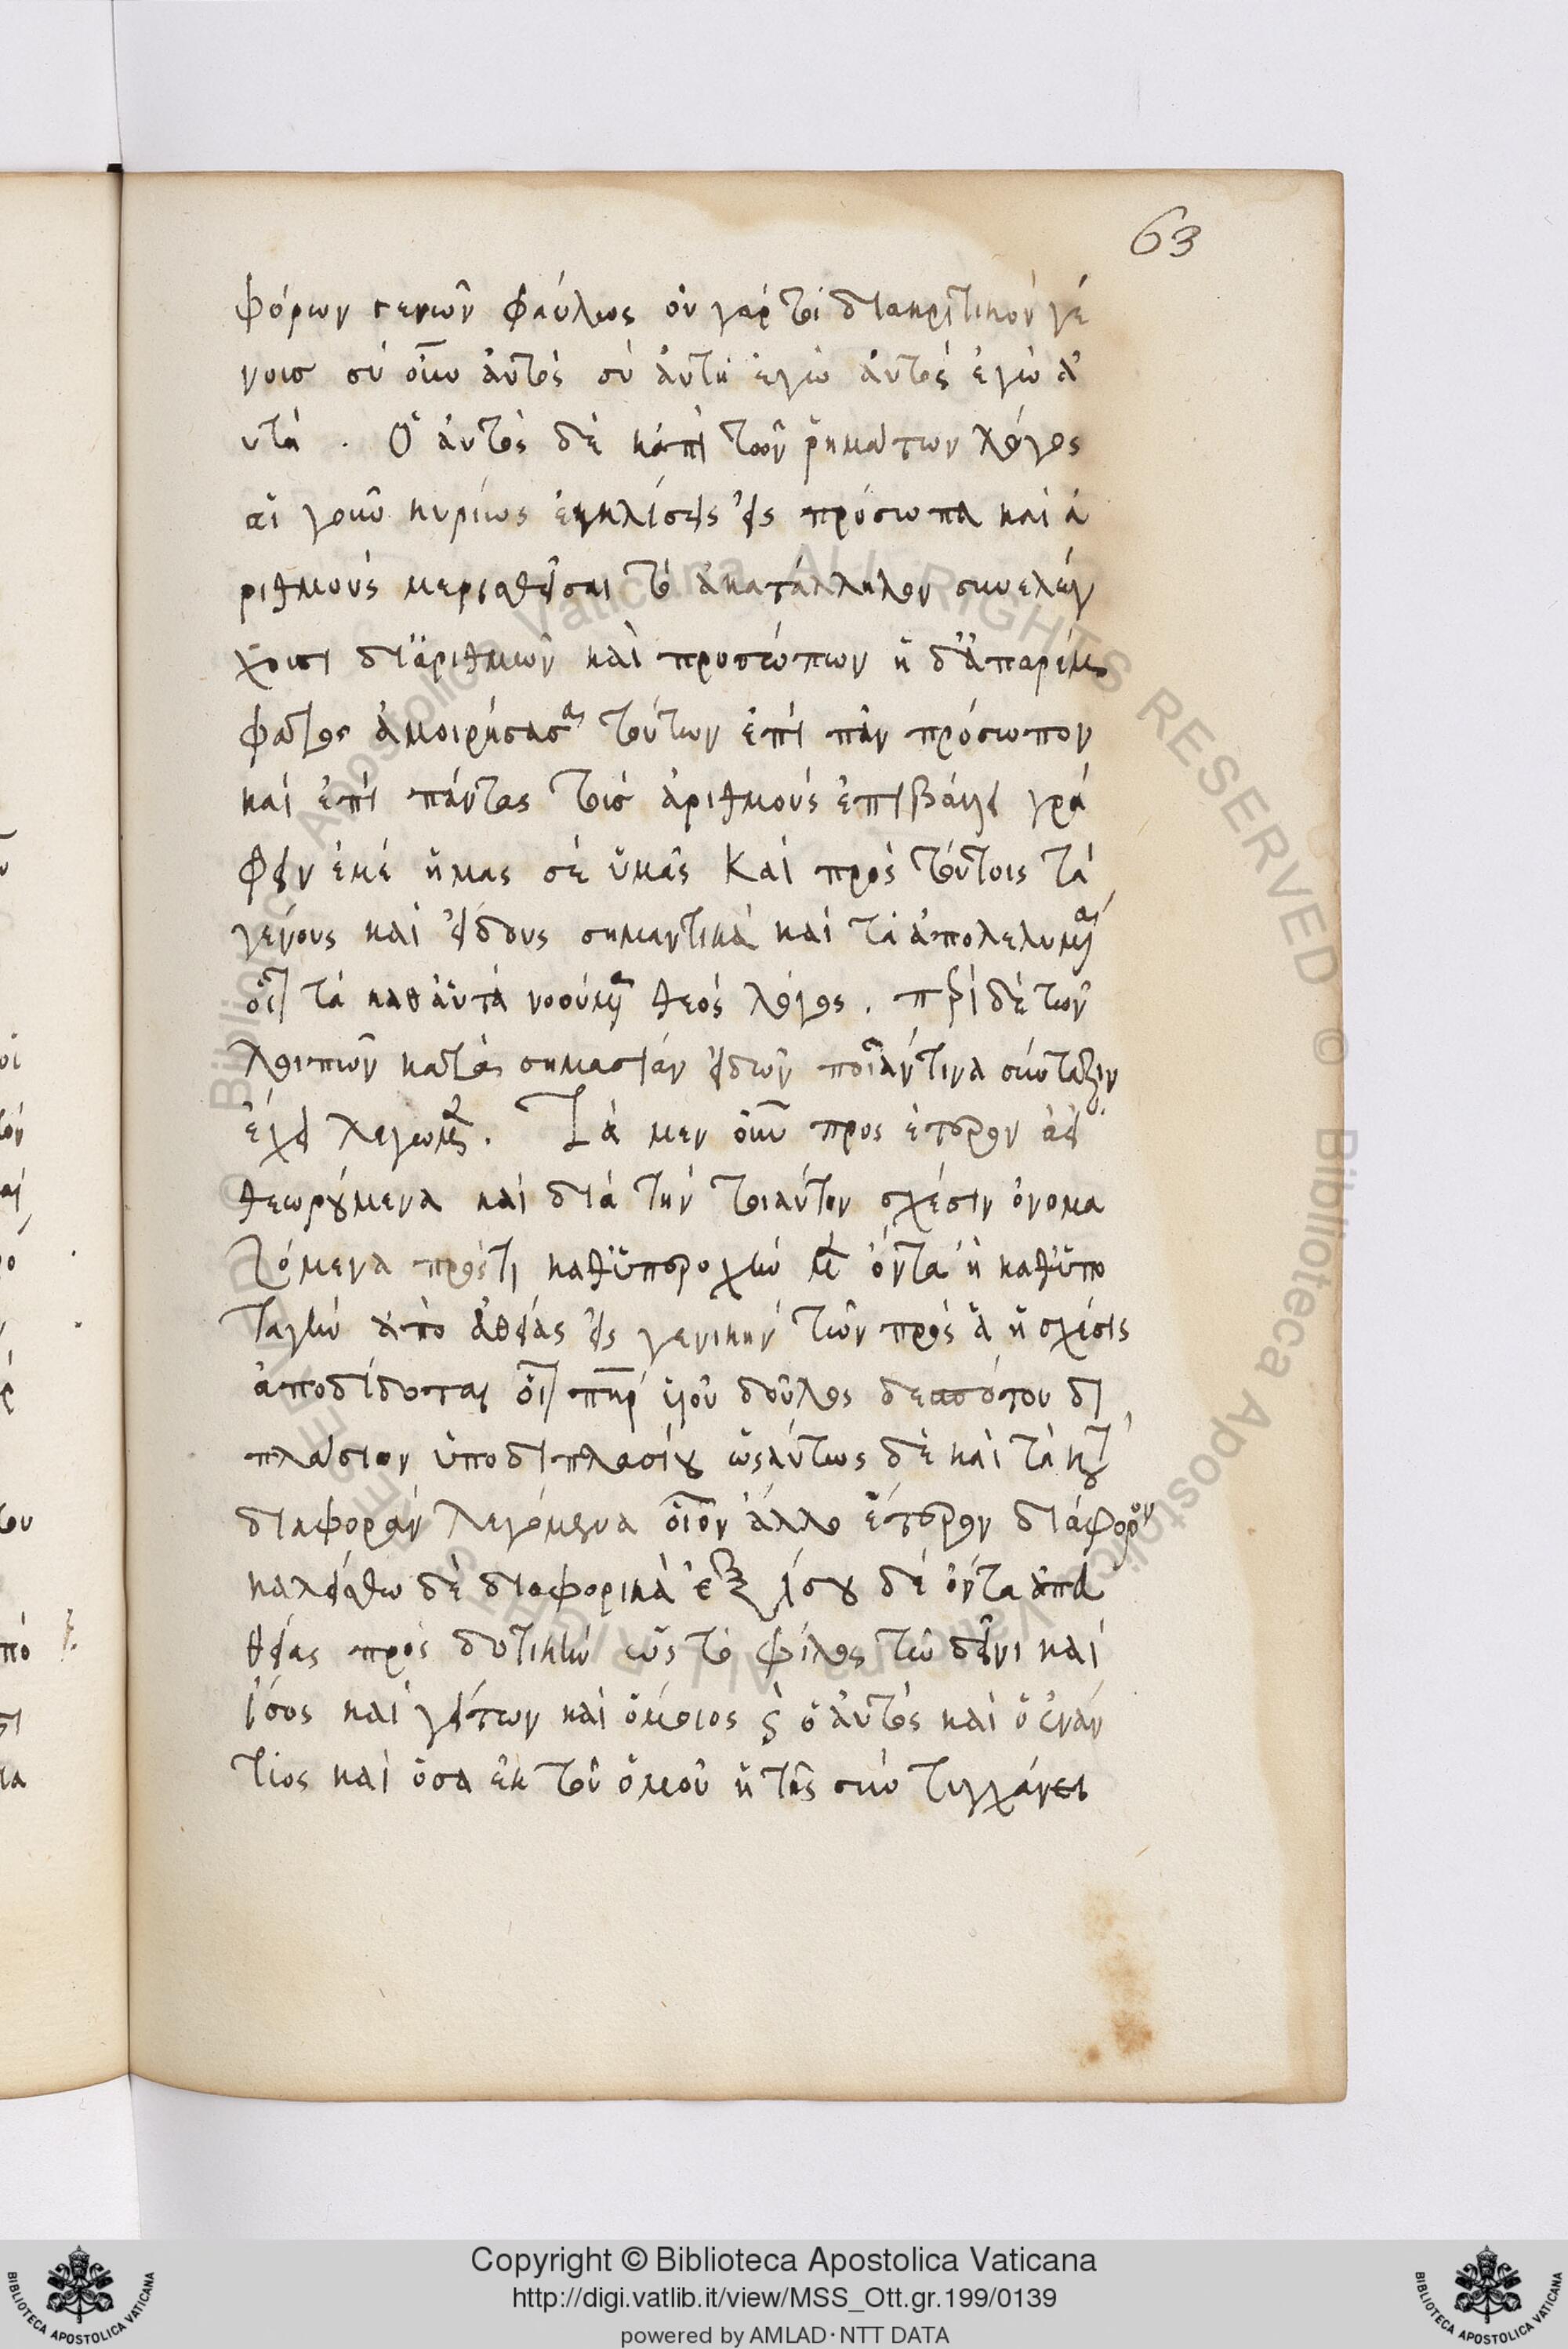 63
φόρων γενῶν φαύλως οὐ γάρ τοι διακριτικόν γέ
νους σύ οὖν αὐτός σύ ἀυτή ἐγώ ἀυτός ἐγώ ἀ
υτή . Ὁ ἀυτός δὲ κἀπὶ τῶν ῥημάτων λόγος
αἱ γοῦν κυρίως ἐγκλίσεις εἰς πρόσωπα καὶ ἀ
ριθμούς μερισθεῖσαι τό ἀκατάλληλον συνελέγ
χουσι δι ἀριθμῶν καὶ προσώπων ἡ δ ἀπαρέμ
φατος ἀμοιρήσασα τούτων ἐπί πᾶν πρόσωπον
καί ἐπί πάντας τούς ἀριθμούς ἐπιβάλλει γρά
φειν ἐμέ ἡμας σέ ὑμᾶς Καί πρός τούτοις τά
γένους καὶ εἴδους σημαντικά καί τά ἀπολελυμένα
οἷον τά καθ ἁυτά νοούμενα θεός λόγος . περί δέ τῶν
λοιπῶν κατά σημασίαν εἰδῶν ποίαν τινα σύνταξιν
ἔχει λέγωμεν . Τά μεν οὖν προς ἕτερον ἀεί
θεωρούμενα καί διά τήν τοιαύτην σχέσιν ὀνομα
ζόμενα πρός τι καθ ὑπεροχήν μὲν ὄντα ἢ καθ ὑπο
ταγήν ἀπό εὐθείας εἰς γενικήν τῶν πρός ἅ ἡ σχέσις
ἀποδίδοται οἷον πηρ υἱοῦ δοῦλος δεσπότου δι
πλάσιον ὑποδιπλασίου ὡσάυτως δὲ καὶ τά κατά
διαφοράν λεγόμενα οἷον ἄλλο ἕτερον διάφορον
καλείσθω δὲ διαφορικά ἐξ ἴσου δέ ὄντα ἀπ ευ
θείας πρός δοτικήν ὡς τό φίλος τῷ δεῖνι καί
ἴσος καί γείτων καί ὅμοιος καί ὁ ἀυτός καὶ ὁ ἐναν
τίος καὶ ὅσα ἐκ τοῦ ὁμοῦ ἢ τῆς σύν τυγχάνει
Copyright © Biblioteca Apostolica Vaticana
http://digi.vatlib.it/view/MSS_Ott.gr.199/0139
powered by AMLAD·NTT DATA